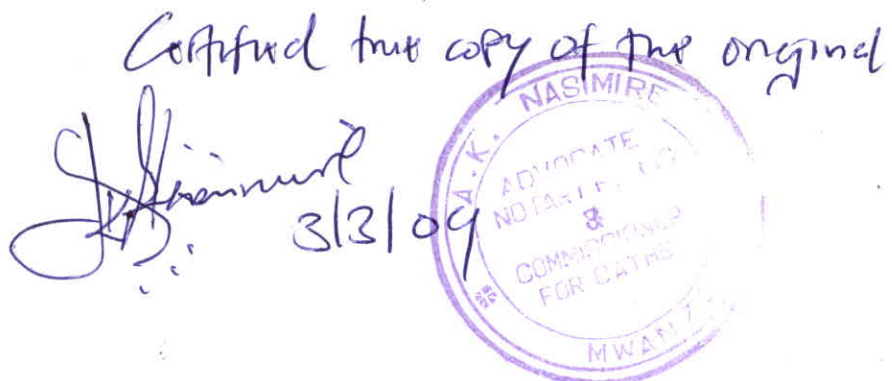 Certified true copy of the original
3/3/09
A.K. NASIMIRE
ADVOCATE
NOTARY
&
COMMISSIONER
FOR OATHS